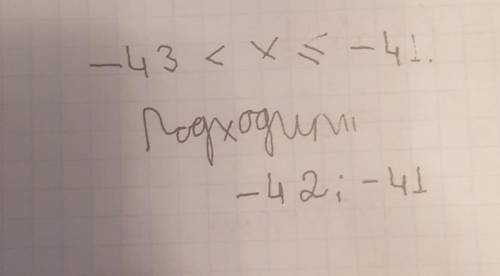 -43 < x ≤ -41.
Подходит
-42; -41